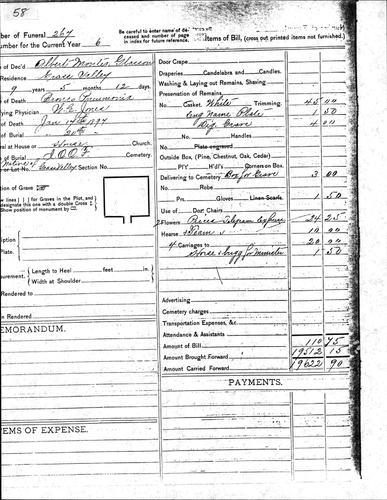 58
er of Funeral 264
umber for the Current Year 6
Be carefully to enter name of deceased and number of page in index for future reference.
Items of Bill, (cross out printed items not furnished.)
of Dec'd Albert Montes
Residence Grass Valley
9 years 5 months 12 days
of Death Pneumonia
ying Physician W. C. Jones
of Death Jan 19th 1897
of Burial 20th
al at House Church.
of Burial I.O.O.F. Cemetery.
or Lot Grass Valley Section No.
tion of Grave
w lines | | | for Graves in the Plot, and
designate this one with a double Cross
Show position of monument by
ription
ate.
urement. Length to Heel feet in.
Width at Shoulder
Rendered to
n Rendered
EMORANDUM.
EMS OF EXPENSE.
Door Crape
Draperies Candelabra and Candles.
Washing & Laying out Remains, Shaving
Preservation of Remains
No. Casket. White Trimming. 45 00
No. Eng Name Plate 1 50
No. Dig Grave 4 00
No. Plate engraved
No. Handles.
Outside Box, (Pine, Chestnut, Oak, Cedar)
P'I'y H'dl's Corners on Box.
Delivering to Cemetery Box for Grave 3 00
No. Robe
Prs. Gloves Linen Scarfs. 1 50
Use of Doz Chairs
Flowers Telegram 24 25
Hearse & Team 10 00
4 Carriages to 20 00
Horse & bugg for Minister 1 50
Advertising
Cemetery charges
Transportation Expenses, &c
Attendance & Assistants
Amount of Bill 110 75
Amount Brought Forward 19512 15
Amount Carried Forward 19622 90
PAYMENTS.